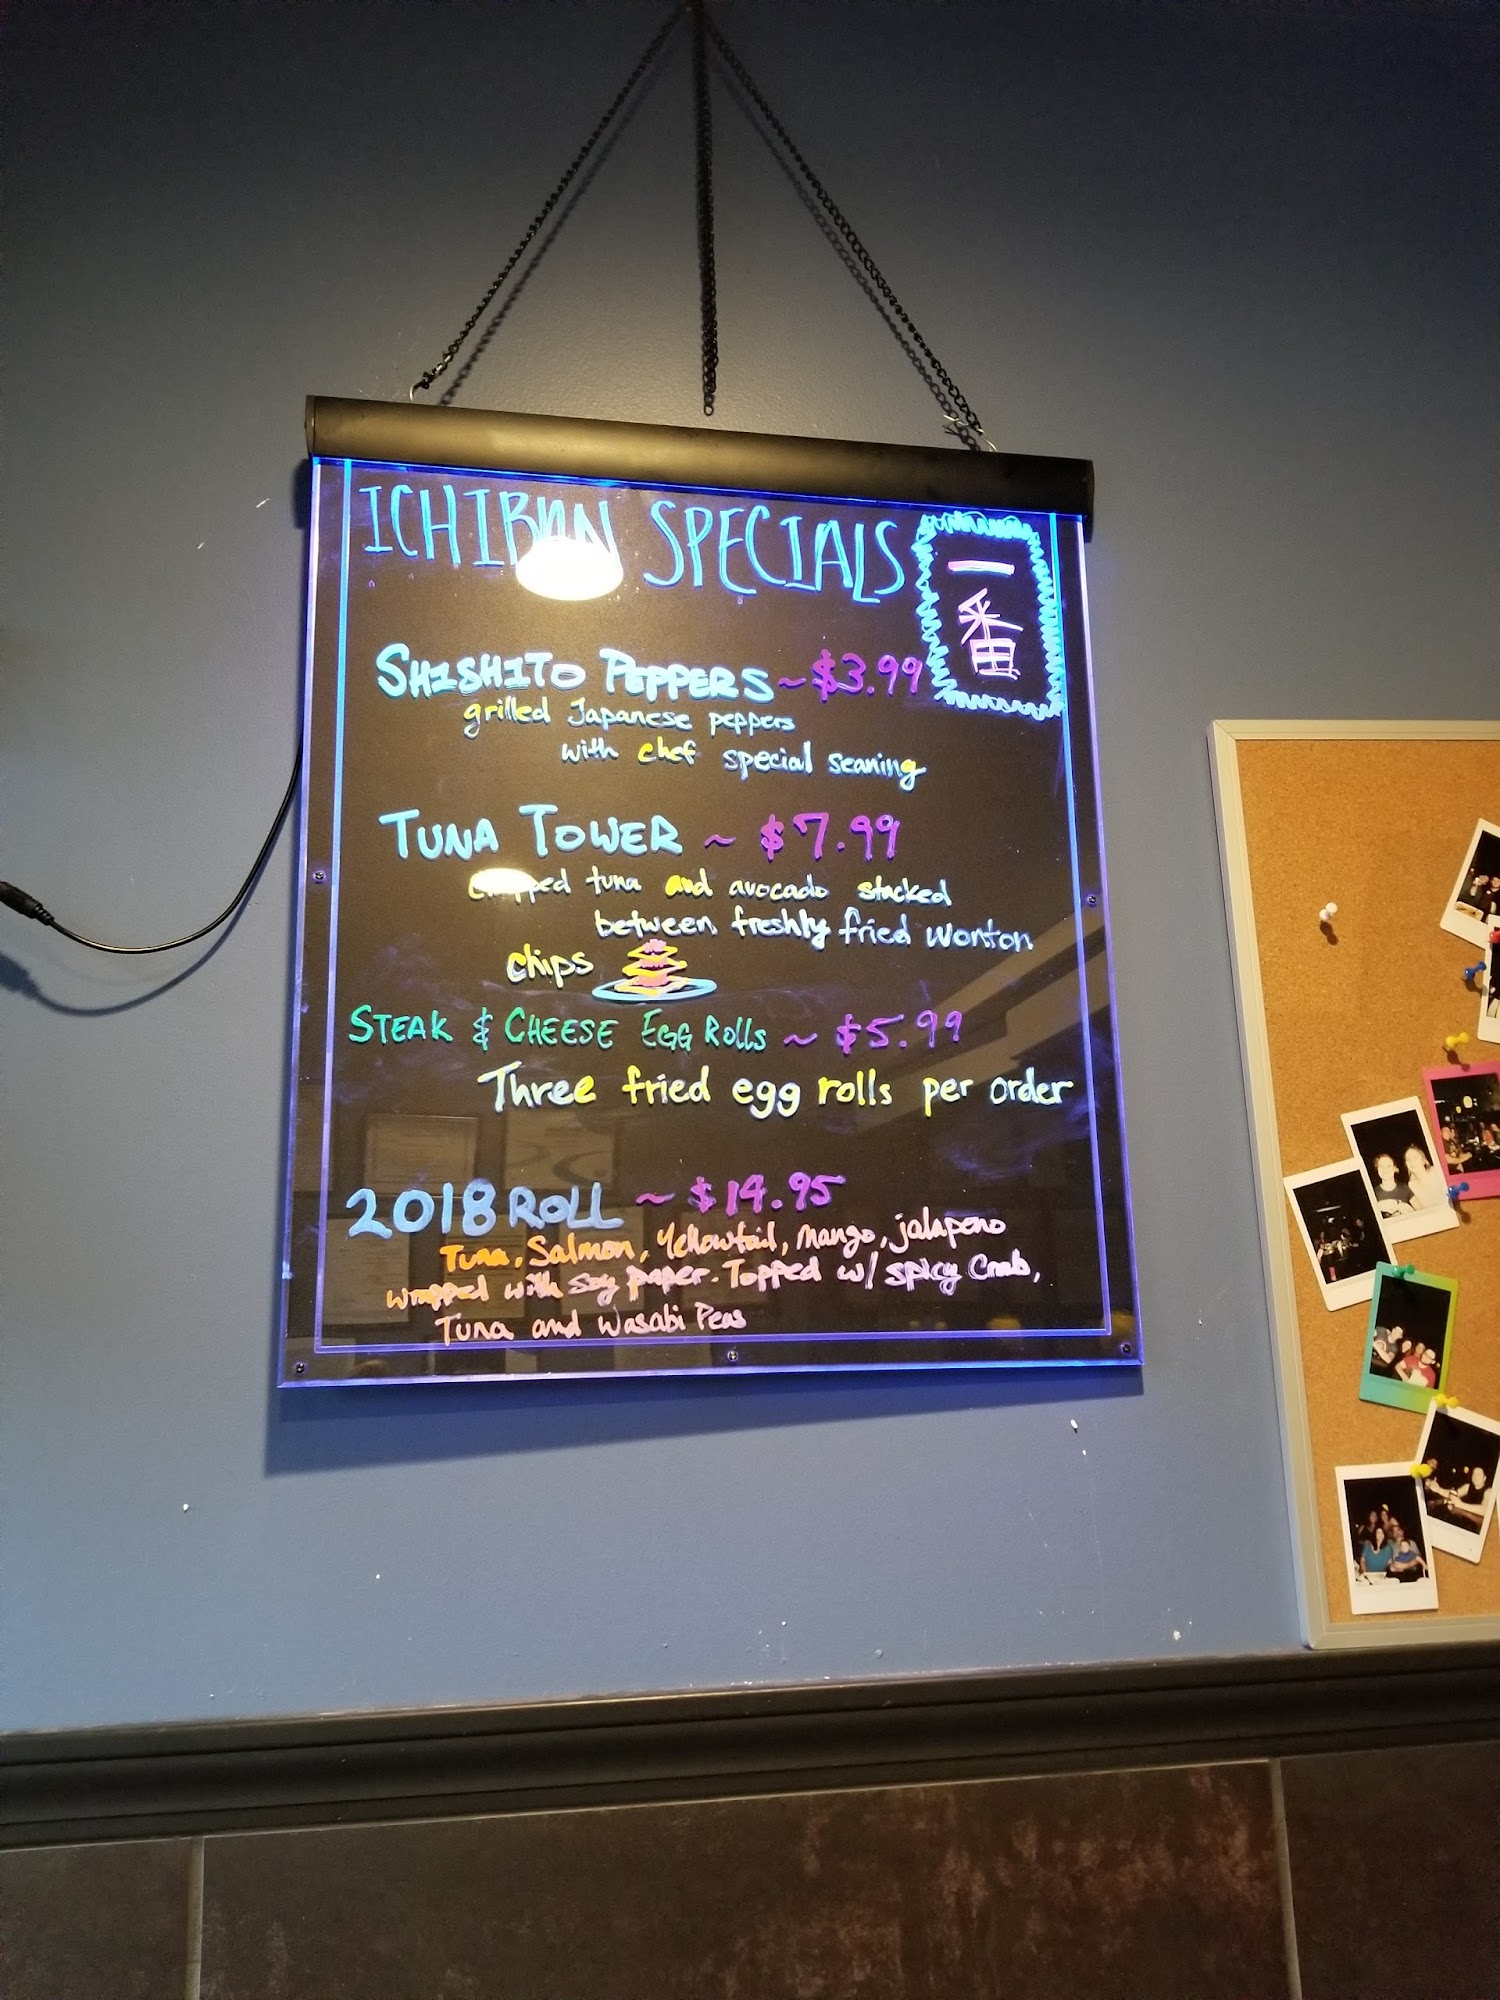 ICHIBAN SPECIALS
一番
SHISHITO PEPPERS ~ $3.99
grilled Japanese peppers
with chef special seaning
TUNA TOWER ~ $7.99
chopped tuna and avocado stacked
between freshly fried wonton
chips
STEAK & CHEESE EGG ROLLS ~ $5.99
Three fried egg rolls per order
2018 ROLL ~ $14.95
Tuna, Salmon, Yellowtail, Mango, jalapeno
wrapped with soy paper. Topped w/ spicy Crab,
Tuna and Wasabi Peas